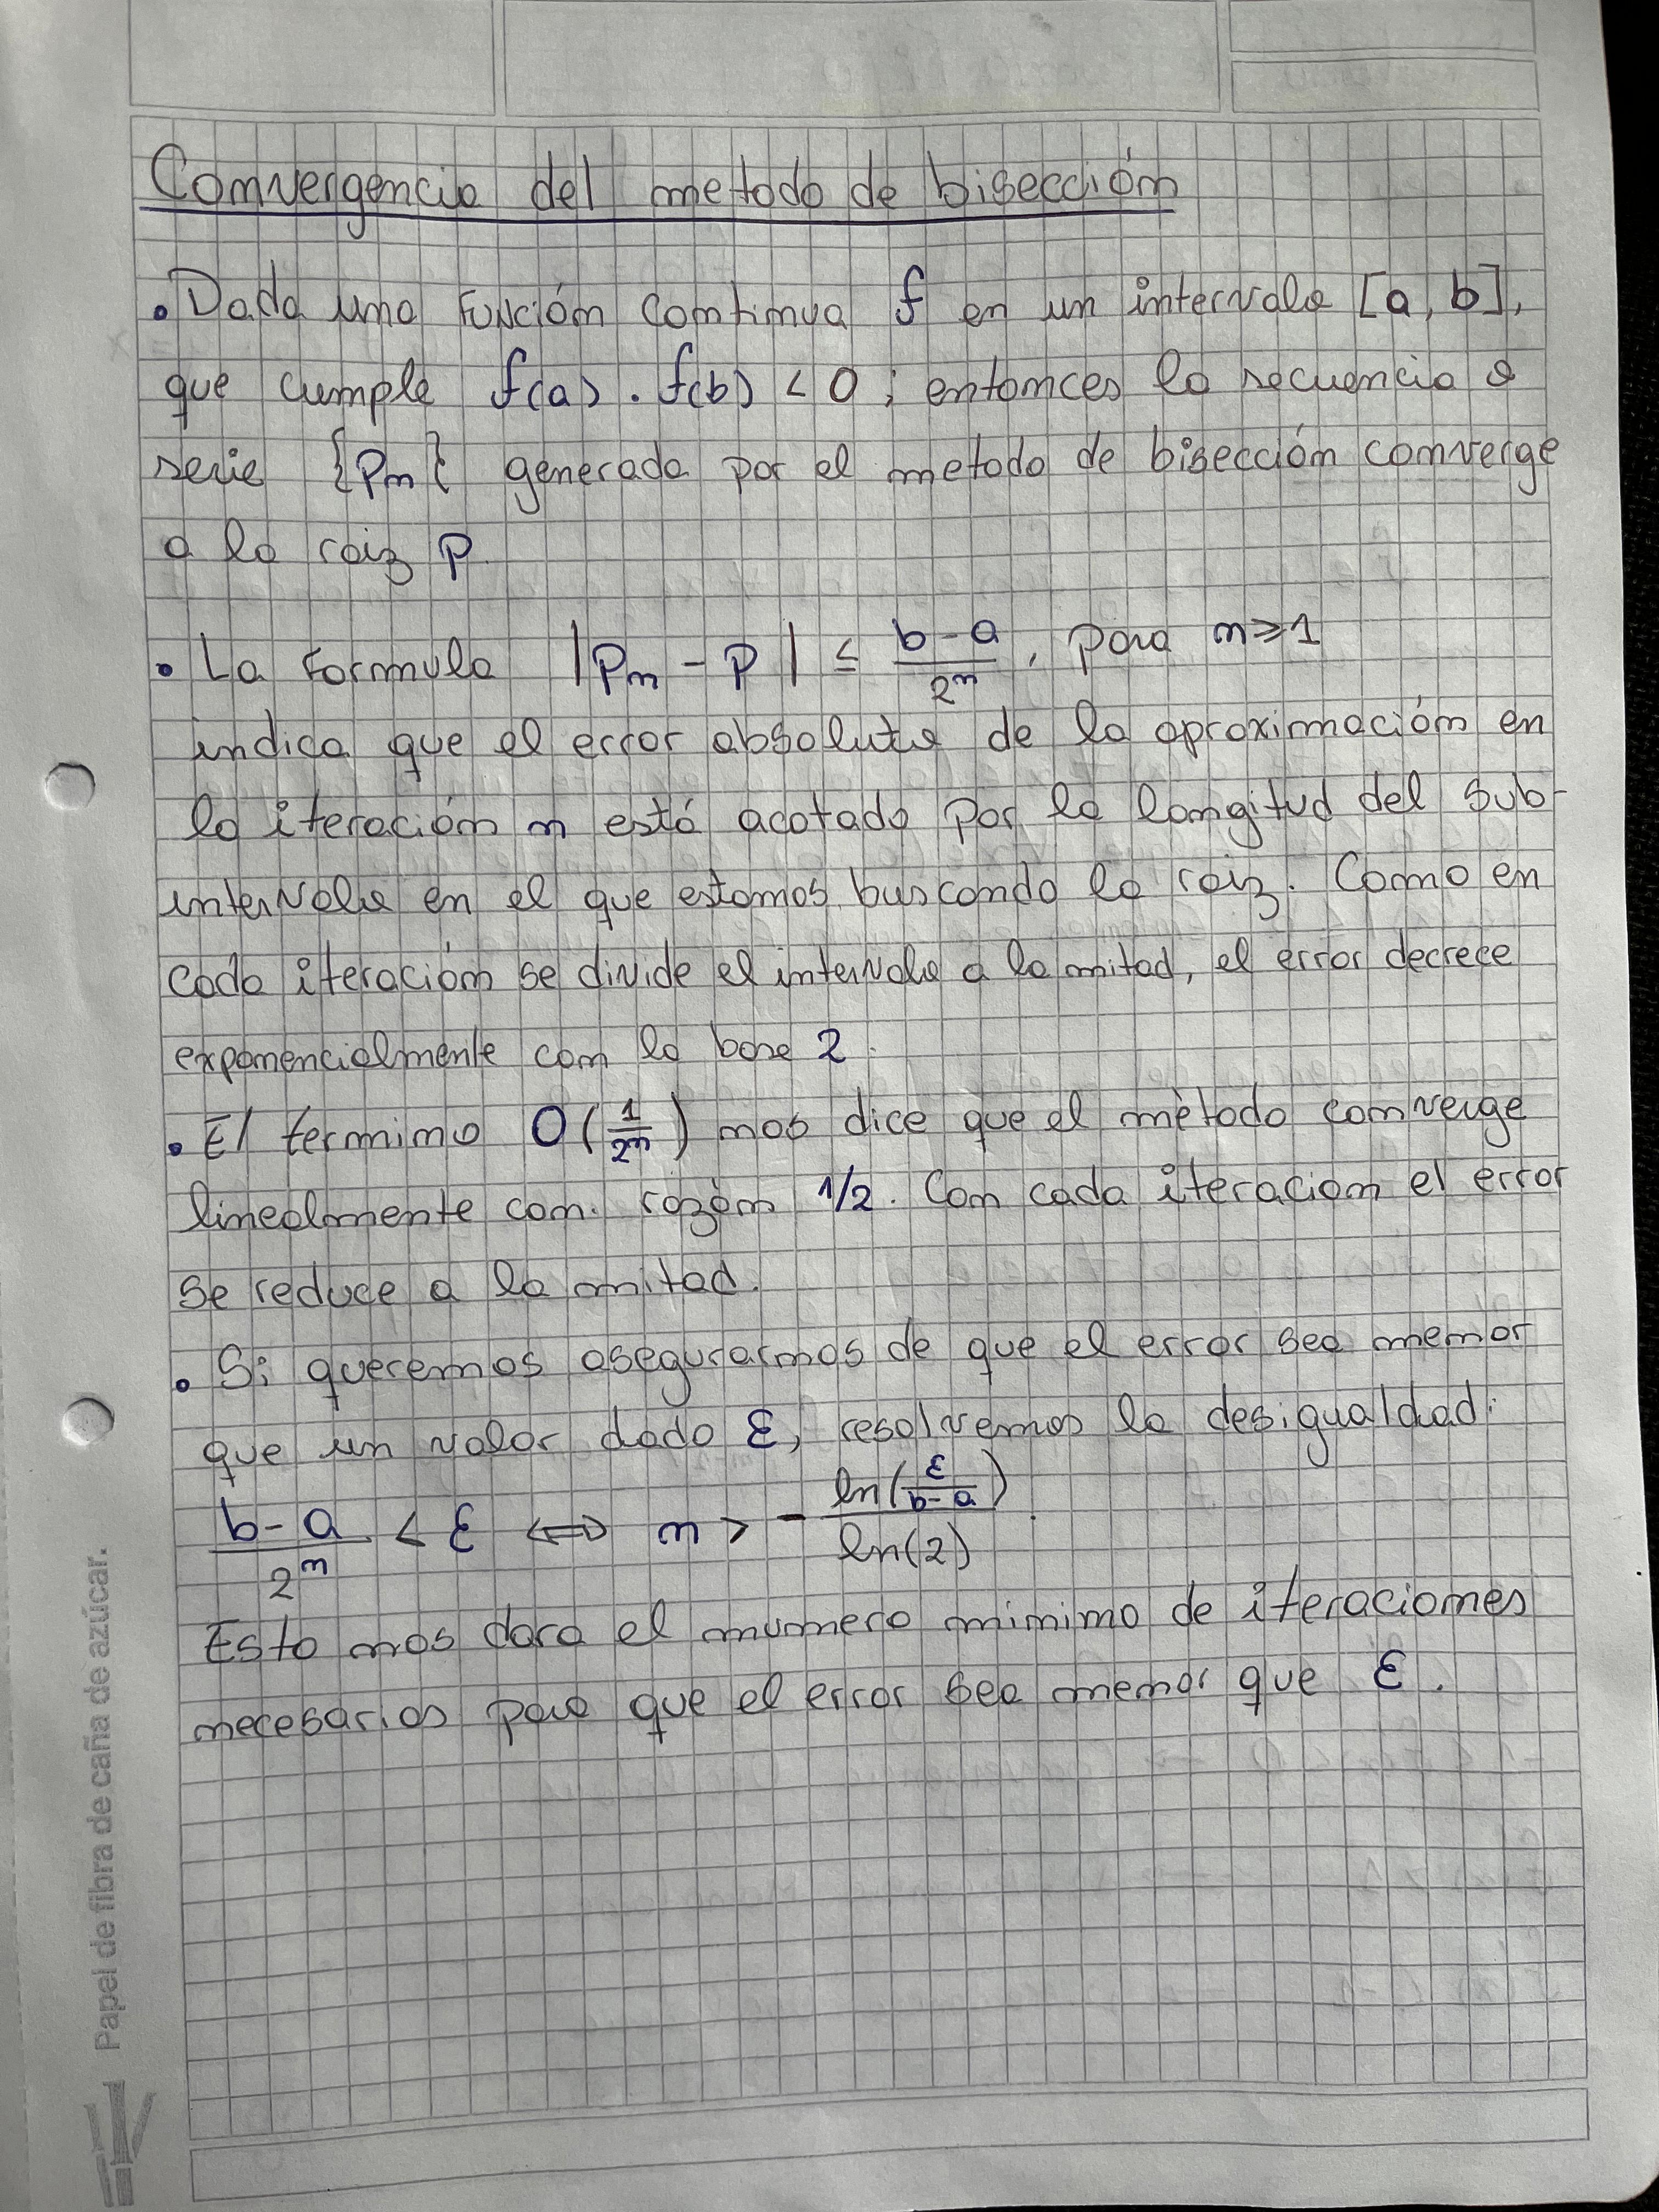 Convergencia del metodo de bisección
• Dada una función continua f en un intervalo [a, b],
que cumple f(a) . f(b) < 0 ; entonces la secuencia o
serie {Pn} generada por el metodo de bisección converge
a la raiz P.
• La Formula |Pn - P| ≤ (b-a)/2^n, para n ≥ 1
indica que el error absoluto de la aproximación en
la iteración n está acotado por la longitud del sub-
intervalo en el que estamos buscando la raiz. Como en
cada iteración se divide el intervalo a la mitad, el error decrece
exponencialmente con la base 2.
• El termino O(1/2^n) nos dice que el mètodo converge
linealmente con. razón 1/2. Con cada iteracion el error
se reduce a la mitad.
• Si queremos asegurarnos de que el error sea menor
que un valor dado ε, resolvemos la desigualdad:
(b-a)/2^n < ε ⟺ n > - ln(ε/(b-a))/ln(2).
Esto nos dara el numero minimo de iteraciones
necesarios para que el error sea menor que ε.
Papel de fibra de caña de azúcar.